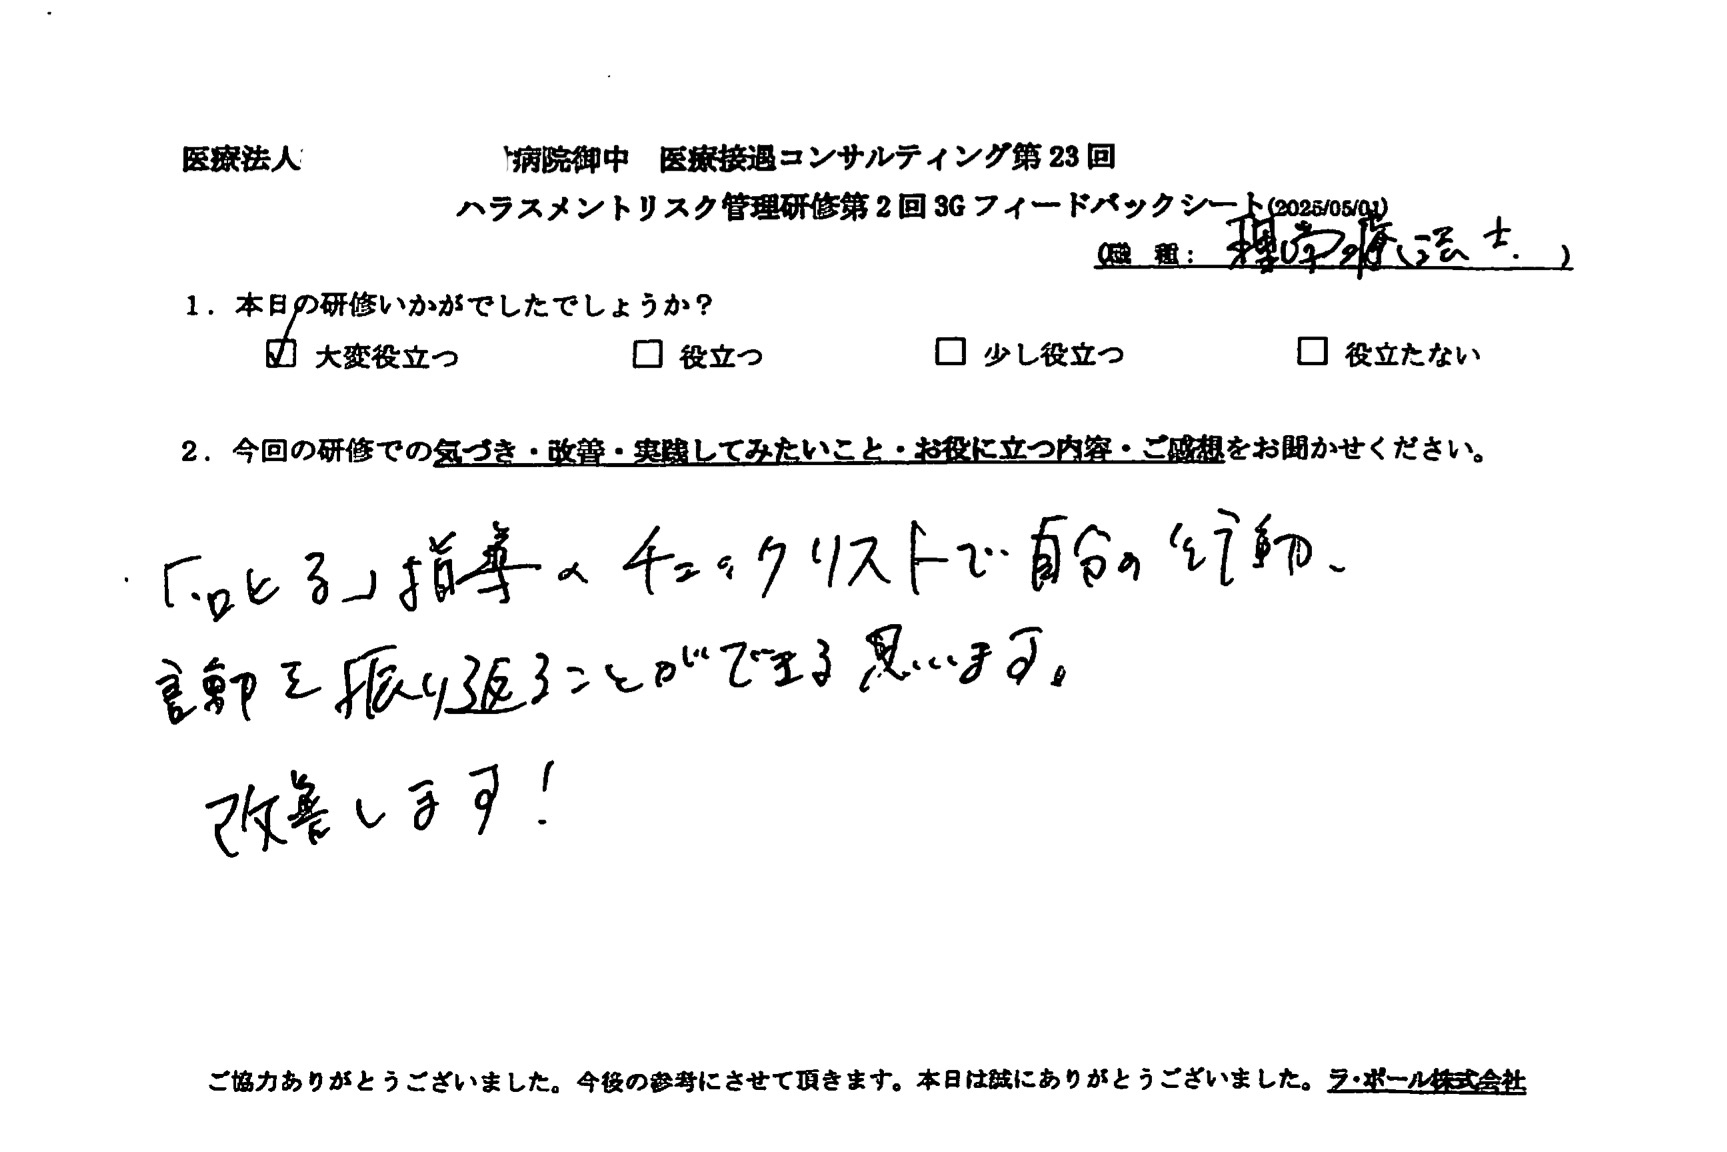 医療法人 病院御中 医療接遇コンサルティング第23回
ハラスメントリスク管理研修第2回3Gフィードバックシート(2025/05/01)
(職 種: 理学療法士. )
1. 本日の研修いかがでしたでしょうか?
☑ 大変役立つ □ 役立つ □ 少し役立つ □ 役立たない
2. 今回の研修での気づき・改善・実践してみたいこと・お役に立つ内容・ご感想をお聞かせください。
指導のチェックリストで自分の行動、
言動を振り返ることができる思います。
改善します!
ご協力ありがとうございました。今後の参考にさせて頂きます。本日は誠にありがとうございました。ラ・ポール株式会社